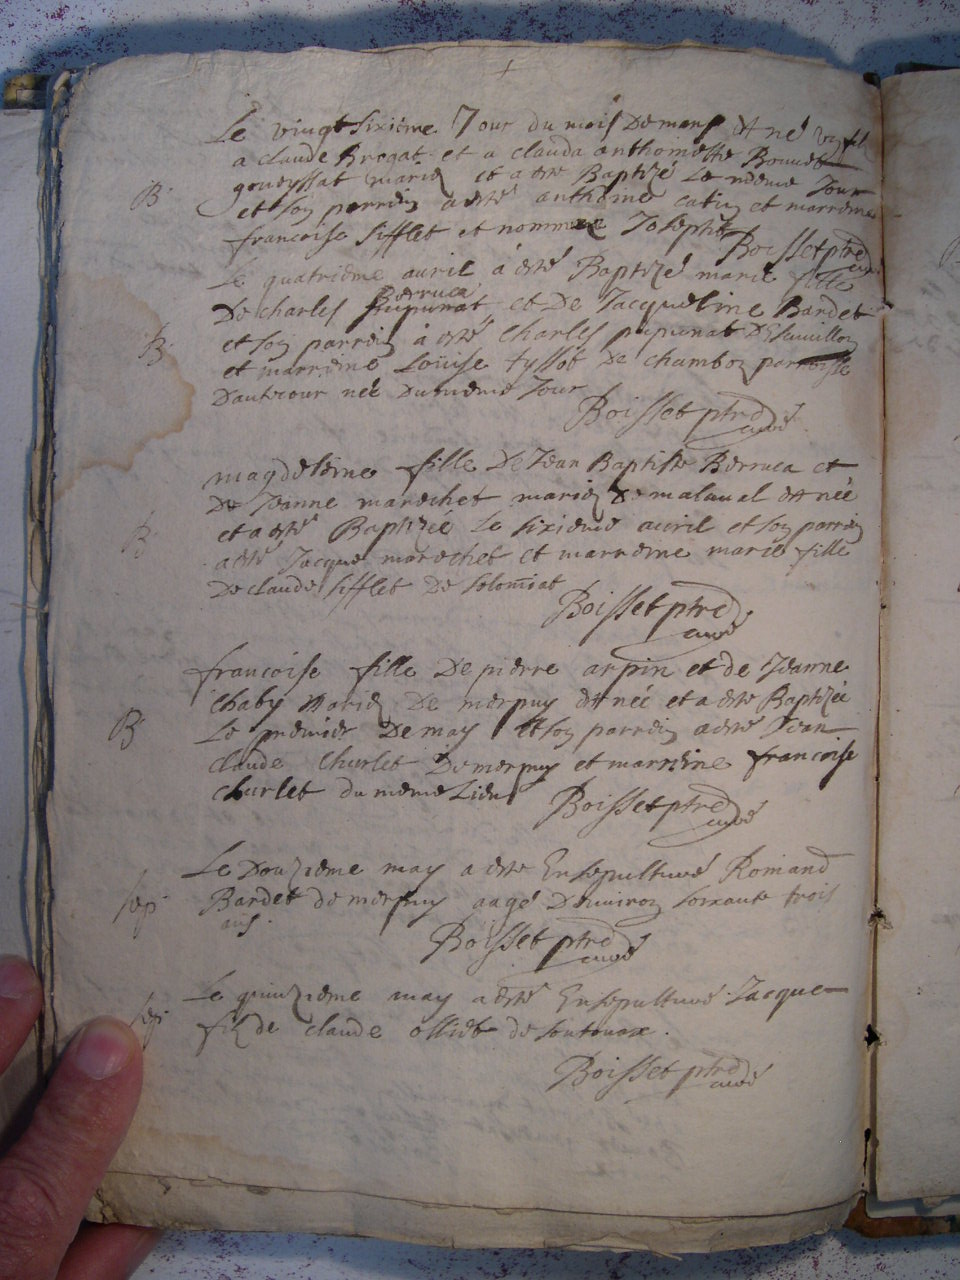 +
Le vingt sixième Jour du mois de mars est né un fil
a claude Brogat et a clauda anthomette Bouvet
B goueyssat mariez et a esté Baptizé Le meme Jour
et son parrein a esté anthoine catin et marreine
francoise sifflet et nommée Joseph Boisset ptre curé
Le quatrieme avril a esté Baptizé marie fille
Berruca
De charles et De Jacqueline Bardet
B et son parrein à esté Charles pupunat De
et marreine Loüise tyssot de chambo parroisse
D'autrour née Du meme Jour
Boisset ptre curé
magdeleine fille De Jean Baptiste Berruca et
De Jeanne marechet mariez de malaval est née
B et a esté Baptizée Le sixieme avril et son parrein
a esté Jacque marechet et marreine marie fille
De claude sifflet de solomiat
Boisset ptre curé
francoise fille De pierre arpin et de Jeanne
Chaby mariez De merpuy est née et a esté Baptizée
B Le premier De may et son parrein a esté Jean
claude Churlet De merpuy et marreine francoise
churlet du meme Lieu Boisset ptre curé
Le Douzieme may a esté Ensepulturé Romand
sep Bardet de merpuy aagé D'environ soixante trois
ans Boisset ptre curé
sep Le quinzieme may a esté Ensepulturé Jacque
fiz de claude olliet de
Boisset ptre curé